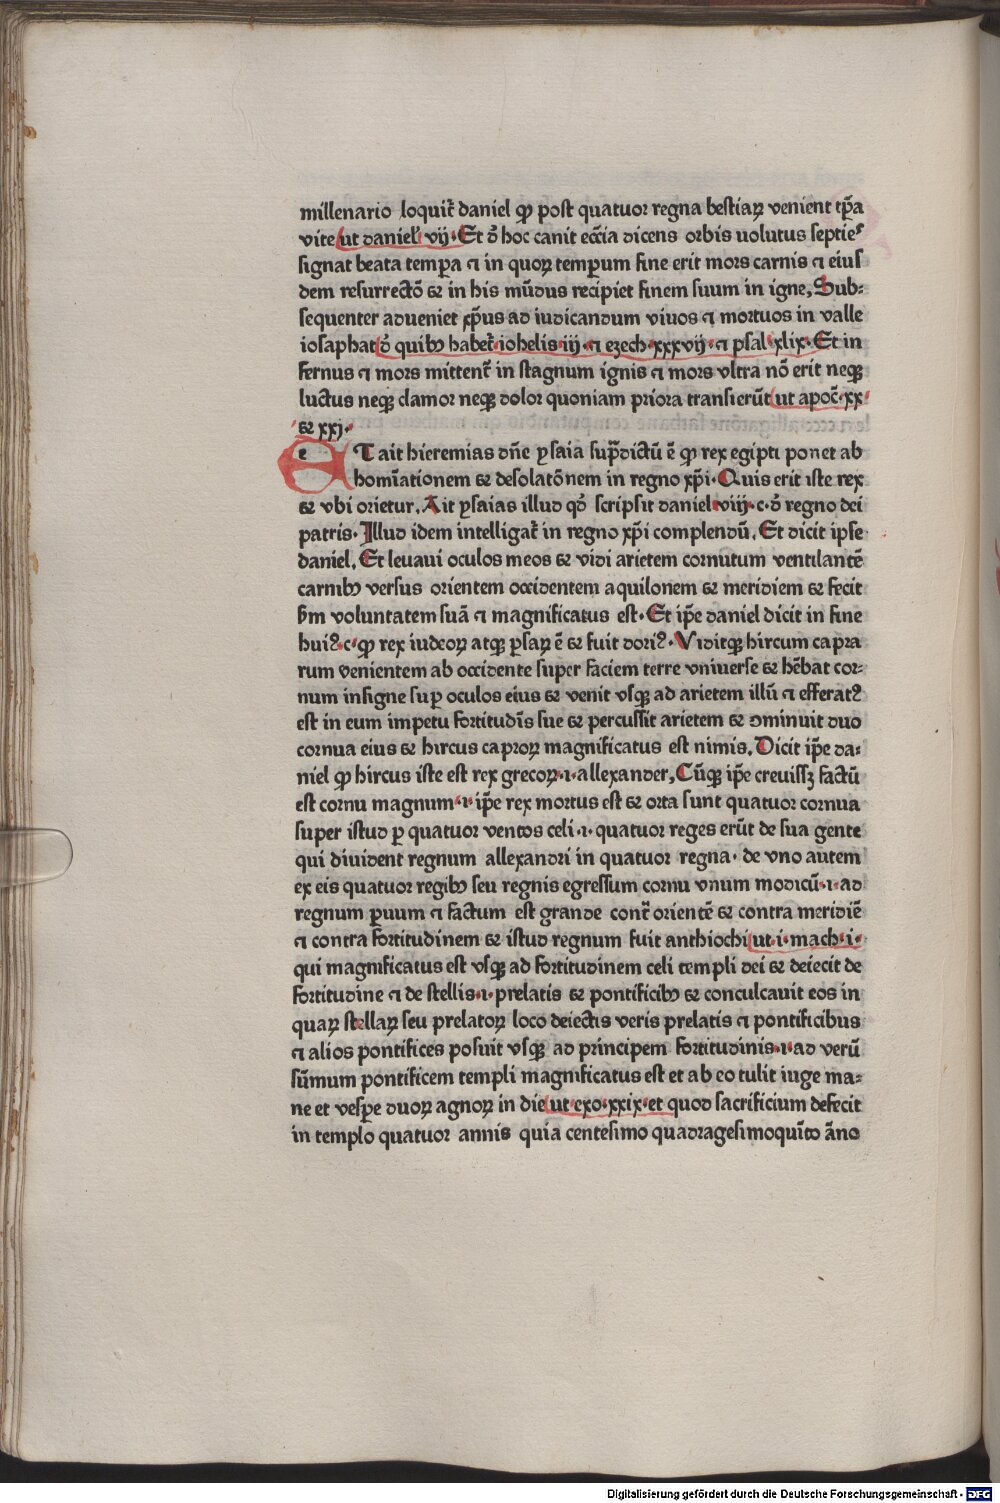 millenario loquit̃ daniel qꝫ post quatuor regna bestiaꝝ venient tꝑa
vite ut daniel̃ vij· Et õ hoc canit ecc̃ia dicens orbis uolutus septieˢ
signat beata tempa ⁊ in quoꝝ tempum fine erit mors carnis ⁊ eius
dem resurrectõ & in his mũdus recipiet finem suum in igne, Sub-
sequenter adueniet xp̃us ad iudicandum viuos ⁊ mortuos in valle
iosaphat õ quibꝫ habet̃ iohelis iij ⁊ ezech·xxxvij·⁊ psal·xlix· Et in
fernus ⁊ mors mittent̃ in stagnum ignis ⁊ mors vltra nõ erit neqꝫ
luctus neqꝫ clamor neqꝫ dolor quoniam priora transierũt ut apoc̃·xx
& xxj·
eT ait hieremias dñe ysaia sup̃dictũ ẽ qꝫ rex egipti ponet ab
homĩationem & desolatõnem in regno xp̃i· Quis erit iste rex
& vbi orietur, Ait ysaias illud qđ scripsit daniel viij·c·õ regno dei
patris· Illud idem intelligat̃ in regno xp̃i complendũ, Et dicit ipse
daniel, Et leuaui oculos meos & vidi arietem cornutum ventilantẽ
carnibꝫ versus orientem occidentem aquilonem & meridiem & fecit
s̃m voluntatem suã ⁊ magnificatus est· Et ip̃e daniel dicit in fine
huiꝰ c· qꝫ rex iudeoꝝ atqꝫ psaꝝ ẽ & fuit doriꝰ· Viditqꝫ hircum capra
rum venientem ab occidente super faciem terre vniuerse & hẽbat cor-
num insigne suꝑ oculos eius & venit vsqꝫ ad arietem illũ ⁊ efferatꝰ
est in eum impetu fortitudĩs sue & percussit arietem & ꝯminuit duo
cornua eius & hircus caproꝝ magnificatus est nimis, Dicit ip̃e da-
niel qꝫ hircus iste est rex grecoꝝ·i·allexander, Cũqꝫ ip̃e creuissꝫ factũ
est cornu magnum·i·ip̃e rex mortus est & orta sunt quatuor cornua
super istud ꝑ quatuor ventos celi·i·quatuor reges erũt de sua gente
qui diuident regnum allexandri in quatuor regna· de vno autem
ex eis quatuor regibꝫ seu regnis egressum cornu vnum modicũ·i·ad
regnum ꝑuum ⁊ factum est grande cont̃ orientẽ & contra meridiẽ
⁊ contra fortitudinem & istud regnum fuit anthiochi ut·i·mach·i·
qui magnificatus est vsqꝫ ad fortitudinem celi templi dei & deiecit de
fortitudine ⁊ de stellis·i·prelatis & pontificibꝫ & conculcauit eos in
quaꝝ stellaꝝ seu prelatoꝝ loco deiectis veris prelatis ⁊ pontificibus
⁊ alios pontifices posuit vsqꝫ ad principem fortitudinis·i·ad verũ
sũmum pontificem templi magnificatus est et ab eo tulit iuge ma-
ne et vesꝑe duoꝝ agnoꝝ in die ut exo·xxix·et quod sacrificium defecit
in templo quatuor annis quia centesimo quadragesimoquĩto ãno
Digitalisierung gefördert durch die Deutsche Forschungsgemeinschaft - DFG